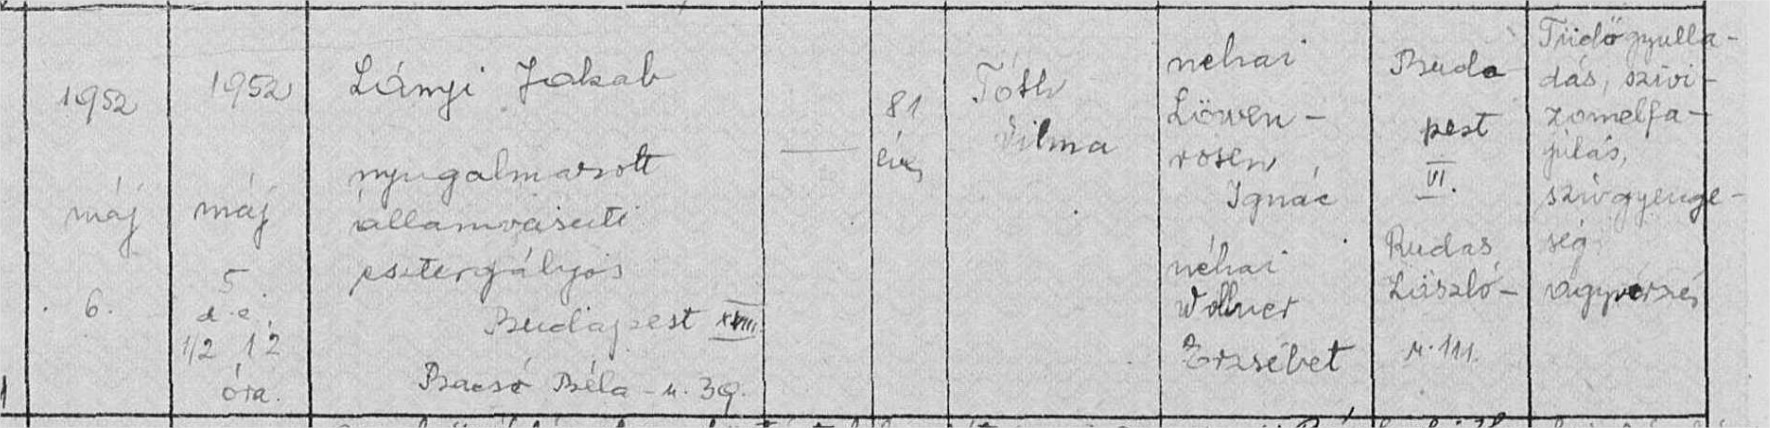 1952
máj
6.
1952
máj
5
d.e.
1/2 12
óra.
Lányi Jakab
nyugalmazott
államvasuti
esztergályos
Budapest XVIII.
Bacsó Béla-u. 39.
81
éves
Tóth
Vilma
néhai
Löwen-
rosen
Ignác
néhai
Wollner
Erzsébet
Buda
pest
VI.
Rudas
László-
u. 111.
Tüdőgyulla-
dás, szívi-
zomelfa-
julás,
szívgyenge-
ség
agyvérzés